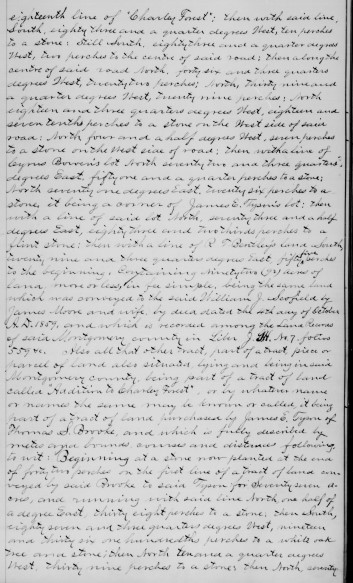 eighteenth line of "Charley Forest"; then with said line,
South, eighty three and a quarter degrees West, ten perches
to a stone: Still South, eighty three and a quarter degrees
West, two perches to the centre of said road; then along the
centre of said road North, forty six and three quarters
degrees West, twenty two perches; North, thirty nine and
a quarter degrees West, twenty nine perches; North
eighteen and three quarters degrees West, eighteen and
seven tenths perches to a stone on the West side of said
road; North four and a half degrees West, seven perches
to a stone on the West side of road; then with a line of
Cyrus Bowen's lot North seventy two and three quarters
degrees East, fifty one and a quarter perches to a stone;
North seventy one degrees East, twenty six perches to a
stone, it being a corner of James E. Tyson's lot; then
with a line of said lot North, seventy three and a half
degrees East, eighty three and two thirds perches to a
stone; then with a line of R. T. Bentley's land South,
twenty nine and three quarters degrees East fifty perches
to the beginning. Containing Ninety two (92) acres of
land, more or less, in fee simple, being the same land
which was conveyed to the said William J. Scofield by
James Moore and wife, by deed dated the 4th day of October
A.D. 1859, and which is recorded among the Land Records
of said Montgomery county in Liber J. H. No 7. folios
558 &c. Also all that other tract, part of a tract, piece or
parcel of land also situated, lying and being in said
Montgomery county, being part of a tract of land
called "Addition to Charley Forest", or by whatever name
or names the same may be known or called, it being
part of a tract of land purchased by James E. Tyson of
Thomas S. Brooke, and which is fully described by
metes and bounds courses and distances following,
to wit: Beginning at a stone now planted at the end
of forty two perches on the first line of a tract of land con-
veyed by said Brooke to said Tyson for Seventy seven a-
cres, and running with said line North one half of
a degree East, thirty eight perches to a stone; then South,
eighty seven and three quarters degrees West, nineteen
and thirty six one hundredths perches to a white oak
tree and stone; then North ten and a quarter degrees
West, thirty nine perches to a stone; then North, seventy